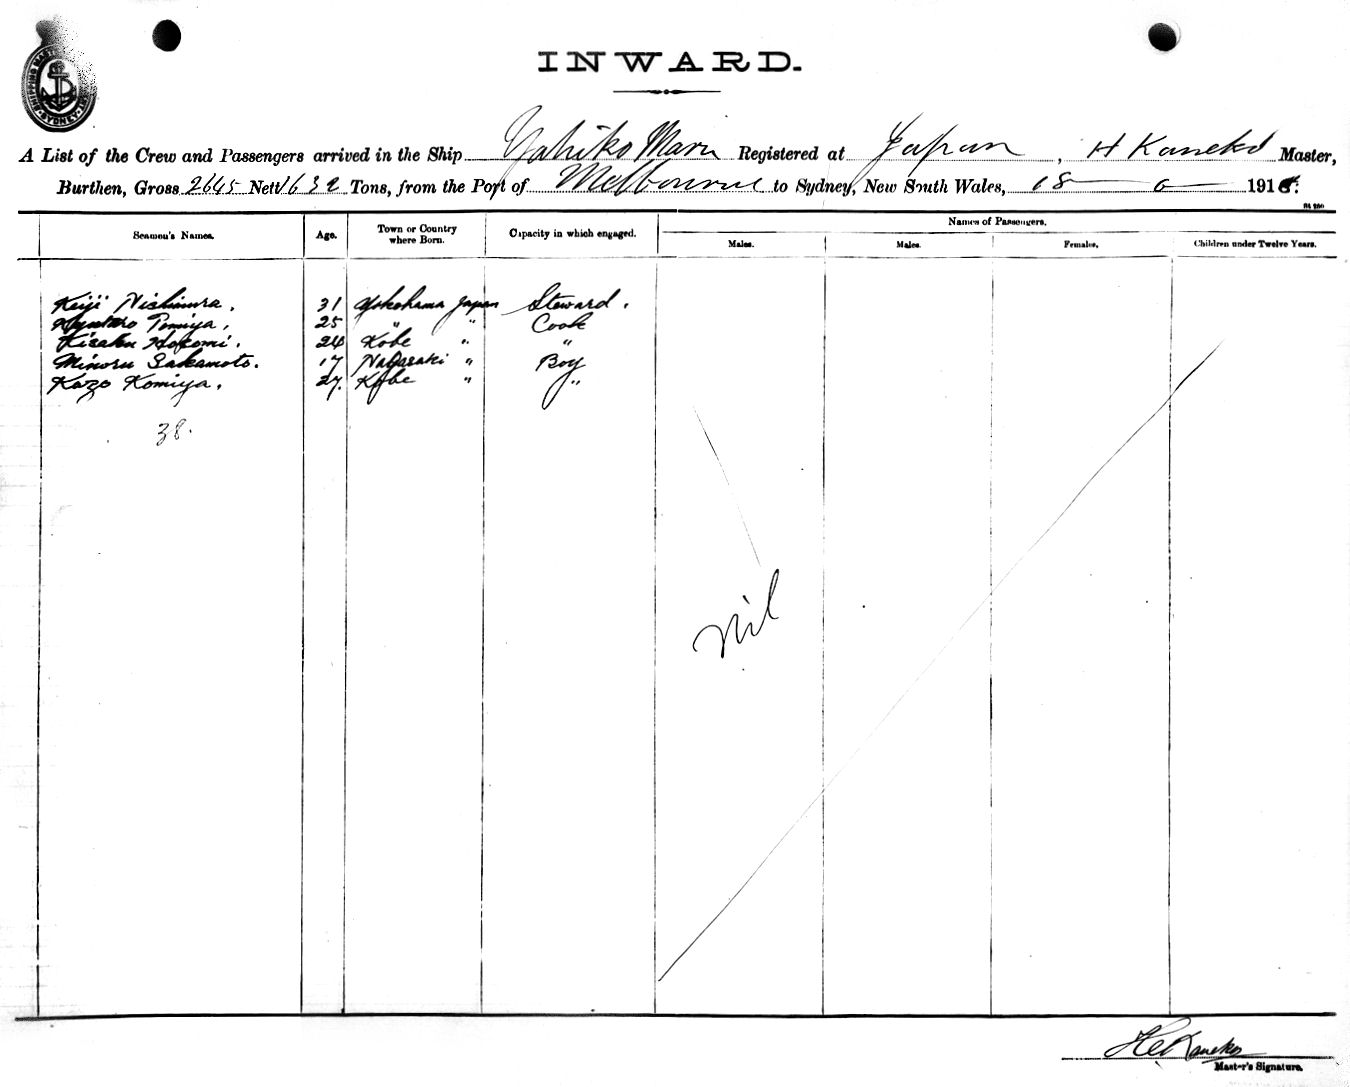 SHIPPING MASTER SYDNEY
INWARD.
A List of the Crew and Passengers arrived in the Ship Yahiko Maru Registered at Japan, H Kaneko Master,
Burthen, Gross 2645 Nett 1632 Tons, from the Port of Melbourne to Sydney, New South Wales, 18 6 191
Seamen's Names. Age. Town or Country where Born. Capacity in which engaged. Names of Passengers.
Males. Males. Females. Children under Twelve Years.
Keiji Nishimura. 31 Yokohama Japan Steward.
Tomiya. 25 " " Cook
Kisaku 24 Kobe " "
Minoru Sakamoto. 17 Nagasaki " Boy
Kazo Komiya. 27. Kobe " "
38.
Nil
H. Kaneko
Master's Signature.